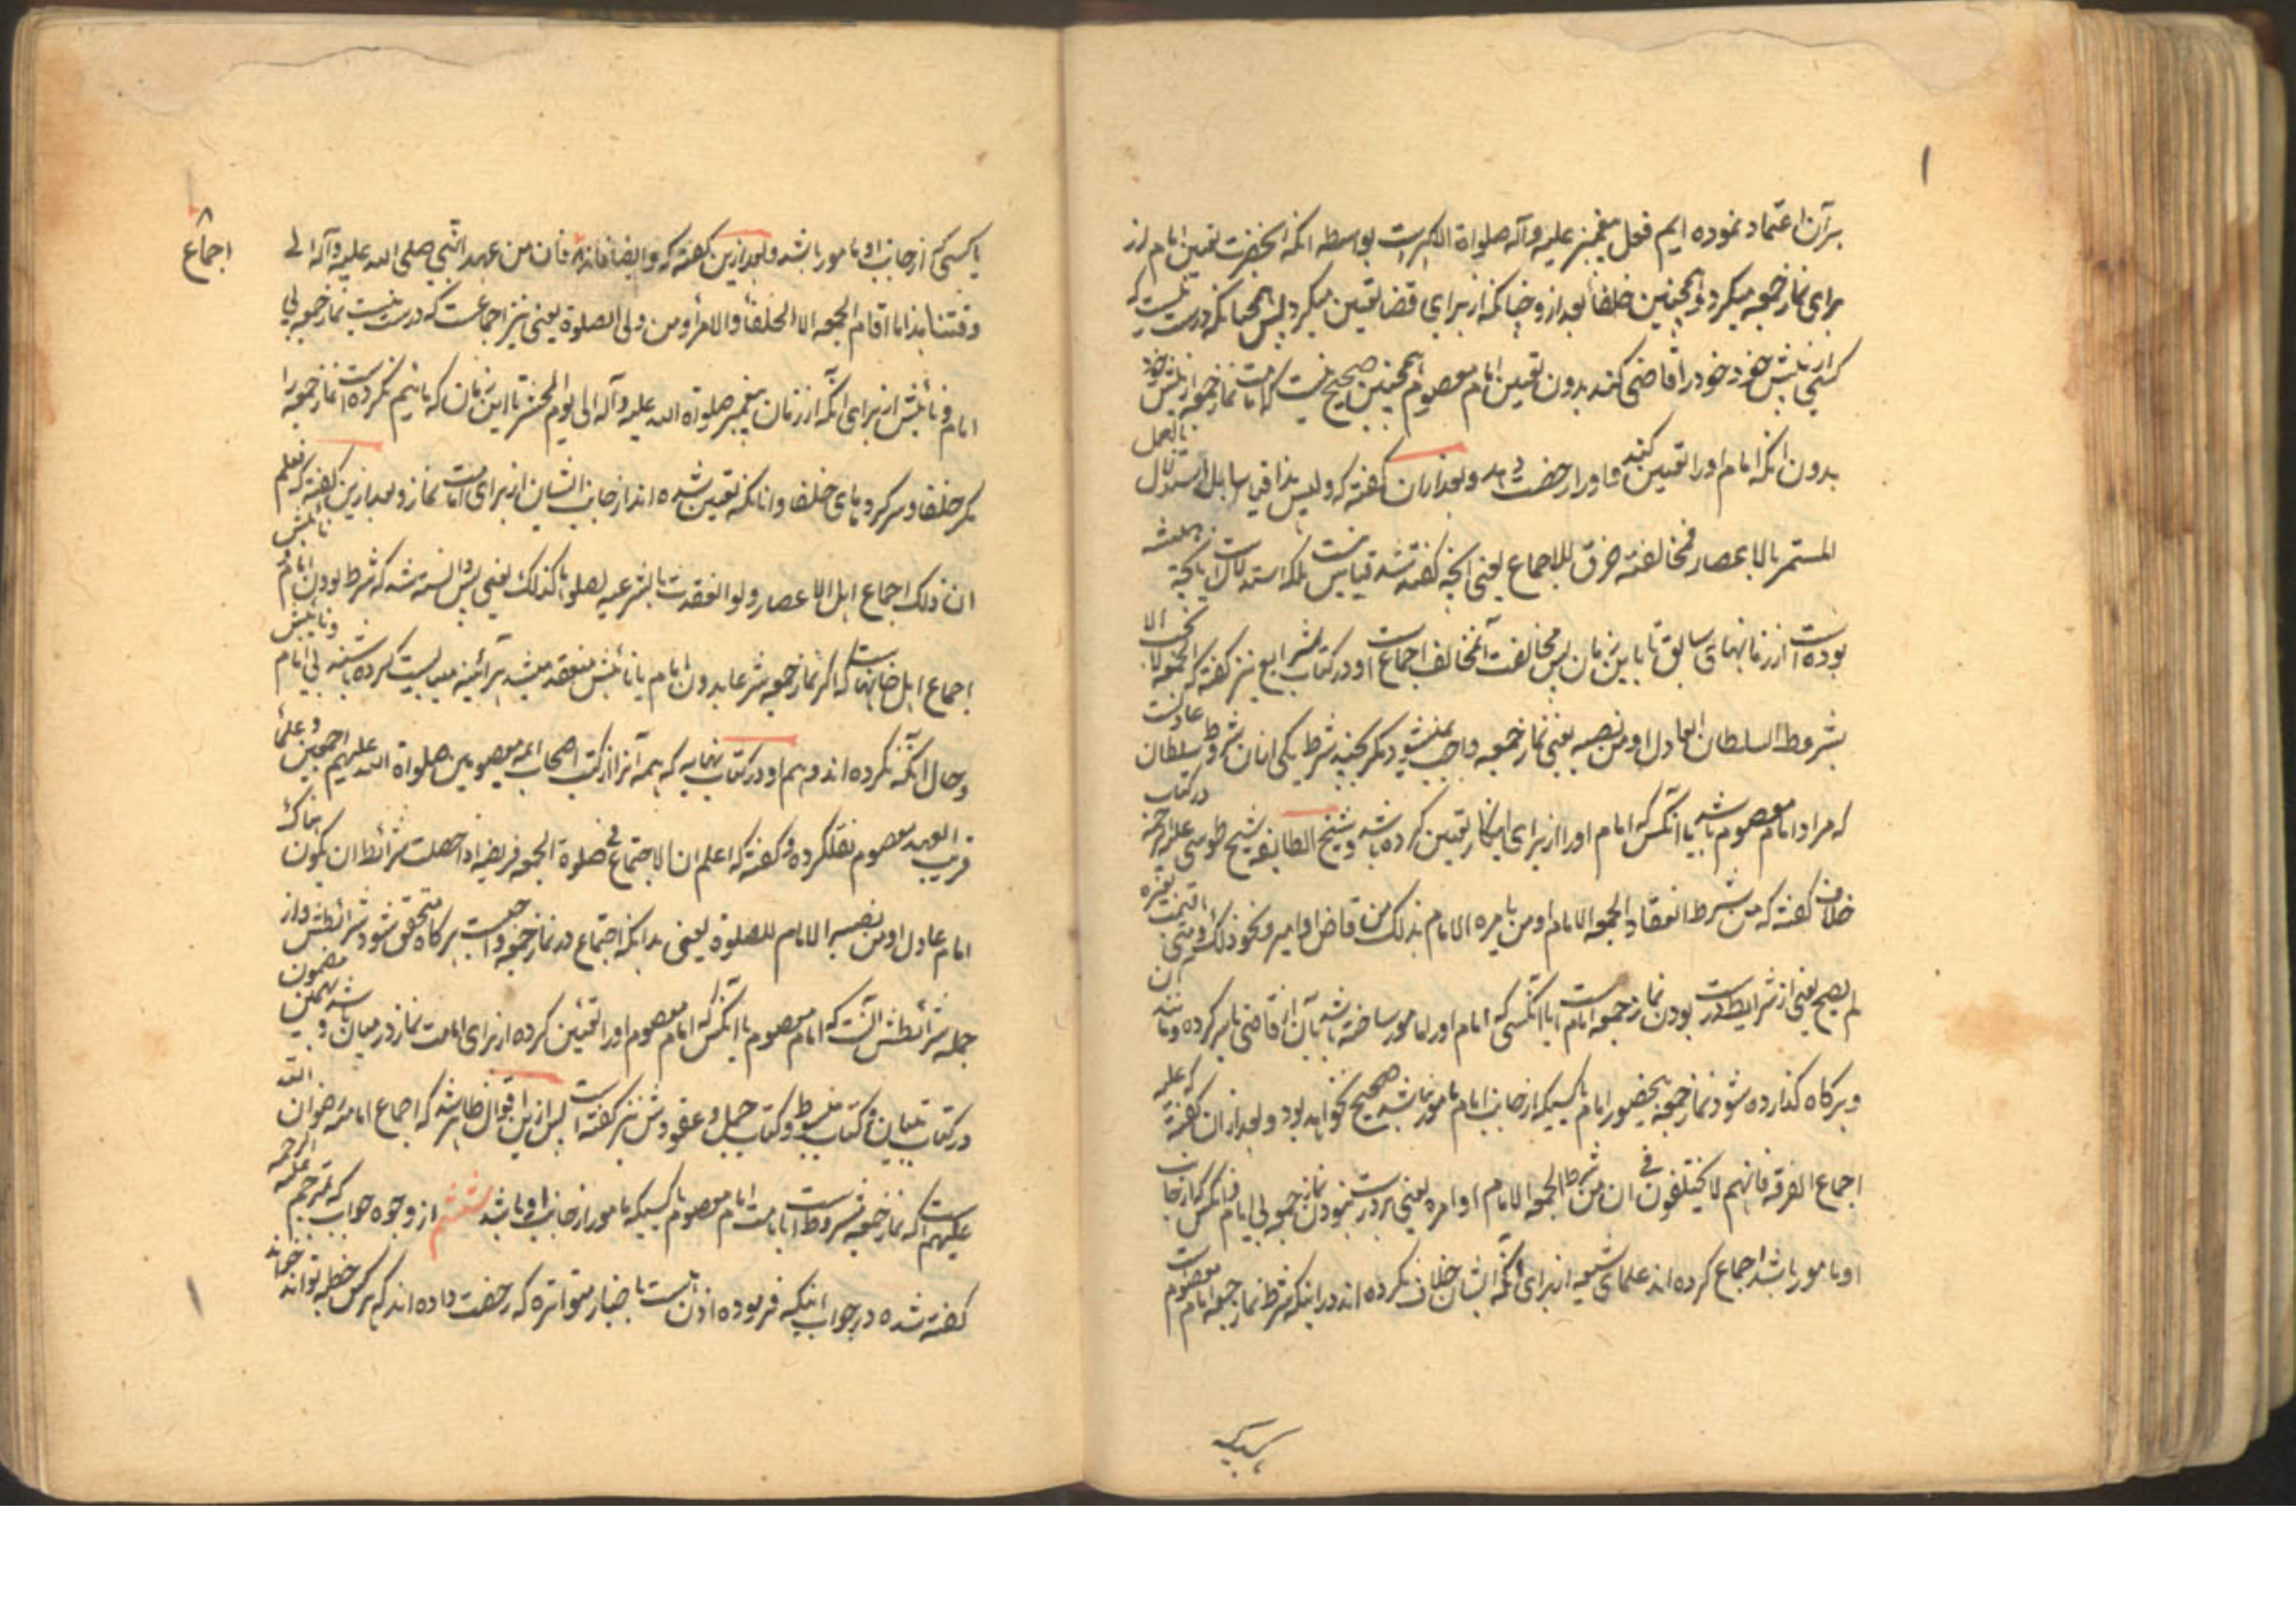 بر آن اعتماد نموده ایم فعل پیغمبر علیه وآله صلواة الاکبر است بواسطه انکه انحضرت تعیین امام از
برای نماز جمعه میکرد و همچنین خلفا بعد از و چنانکه از برای قضا تعیین میکرد پس همچنانکه درست نیست که
کسی از پیش خود خود را قاضی کند بدون تعیین امام معصوم همچنین صحیح نیست که امامت نماز جمعه از پیش خود
بدون انکه امام او را تعیین کند و او را رخصت دهد و بعد از ان گفته که ولیس هذا قیاسا بل استدلال بالعمل
المستمر بالاعصار فمخالفته خرق للاجماع یعنی انچه گفته شد قیاس نیست بلکه استدلال است بانچه همیشه
بوده است از زمانهای سابق تا باین زمان پس مخالفت آن مخالف اجماع است و در کتاب شرایع نیز گفته که الجمعة لا تجب الا
بشروط السلطان العادل او من نصبه یعنی نماز جمعه واجب نمیشود مکر بچند شرط یکی از ان شروط سلطان عادلست
که مراد امام معصوم باشد یا آنکس که امام او را از برای اینکار تعیین کرده باشد و شیخ الطایفه شیخ طوسی علیه الرحمة در کتاب
خلاف گفته که من شرط انعقاد الجمعة الامام او من یامره الامام بذلک من قاض او امیر و نحو ذلک و متی اقیمت بغیره
لم یصح یعنی از شرایط درست بودن نماز جمعه امام است یا آنکسی که امام او را مامور ساخته باشد بآن از قاضی یا سرکرده و مانند ان
و هرکاه کذارده شود نماز جمعه بی حضور امام یا کسیکه از جانب امام مامور باشد صحیح نخواهد بود و بعد از ان گفته که علیه
اجماع الفرقة فانهم لا یختلفون فی ان من شرط الجمعة الامام او امره یعنی بر درست نبودن نماز جمعه بی امام و انکس که از جانب
او مامور باشد اجماع کرده اند علمای شیعه از برای آنکه ایشان خلاف نکرده اند در اینکه شرط نماز جمعه امام معصوم است
یا کسی که از جانب او مامور باشد و بعد از این گفته که و ایضا فانه اجماع فان من عهد النبی صلی الله علیه وآله الی
وقتنا هذا ما اقام الجمعة الا الخلفاء والامراء ومن ولی الصلوة یعنی نیز اجماعست که درست نیست نماز جمعه بی
امام و نائبش از برای آنکه از زمان پیغمبر صلواة الله علیه وآله الی یوم الحشر تا این زمان که مائیم نکرده است نماز جمعه را
مکر خلفا و سرکردهای خلفا و انانکه تعیین شده اند از جانب ایشان از برای امامت نماز و بعد از این گفته که فعلم
ان ذلک اجماع اهل الاعصار ولو انعقدت بالرعیة لصلوها کذلک یعنی پس دانسته شد که شرط بودن امام و نائبش
اجماع اهل زمانهاست که اکر نماز جمعه شرعا بدون امام یا نائبش منعقد میشد هرآئینه میبایست کرده باشند بی امام و نائبش
و حال آنکه نکرده اند و هم او در کتاب نهایه که همه آنرا از کتب اصحاب ائمه معصومین صلواة الله علیهم اجمعین و علمای
قریب العهد معصوم نقلکرده و گفته که اعلم ان الاجتماع فی صلوة الجمعة فریضة اذا حصلت شرائط ان یکون هناک
امام عادل او من نصبه الامام للصلوة یعنی بدانکه اجتماع در نماز جمعه واجبست هرکاه متحقق شود شرائطش و از
جمله شرائطش آنست که امام معصوم یا آنکس که امام معصوم او را تعیین کرده از برای امامت نماز در میان باشد و بهمین مضمون
در کتاب تبیان و کتاب مبسوط و کتاب جمل و عقودش نیز گفته است پس از این اقوال ظاهر شد که اجماع امامیه رضوان الله
علیهم است که نماز جمعه مشروط است بامامت امام معصوم یا کسیکه مامور از جانب او باشد ششم از وجوه جواب که مترجم علیه الرحمه
گفته شده در جواب اینکه فرموده اذن است باخبار متواتره که رخصت داده اند که هر کس خطبه تواند خواند
اجماع
یا کسیکه